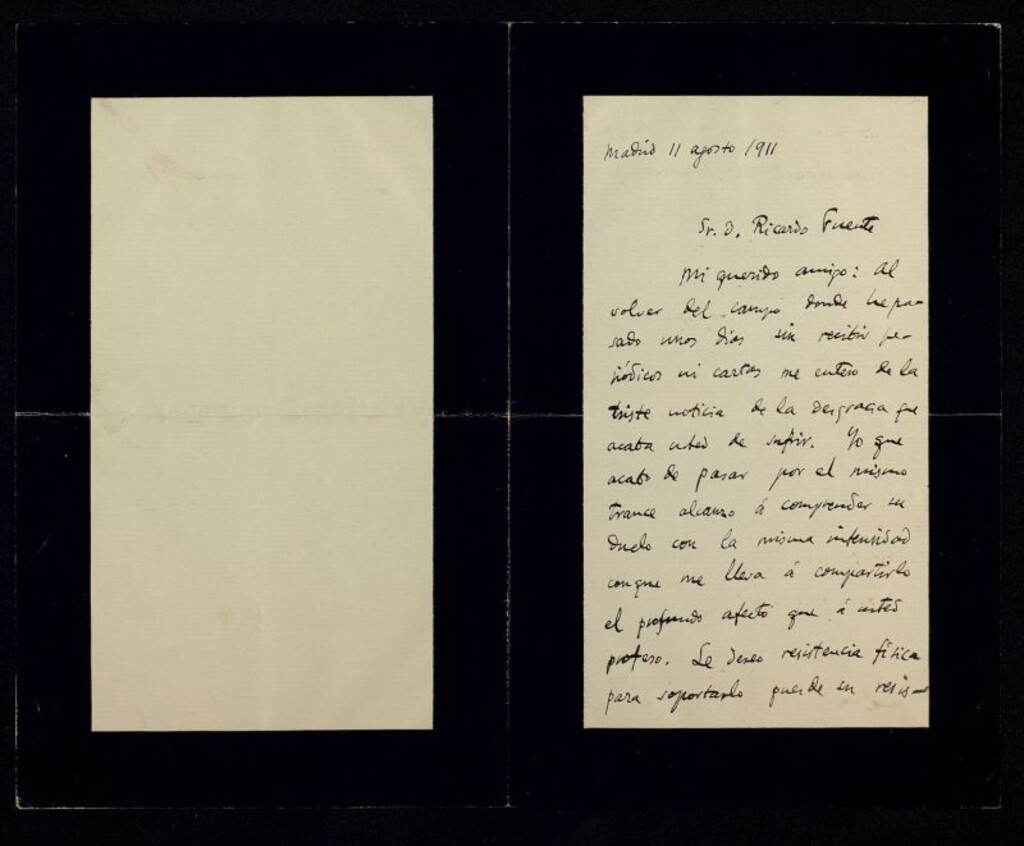 Madrid 11 agosto 1911
Sr. D. Ricardo Fuente
Mi querido amigo: Al
volver del campo donde he pa-
sado unos días sin recibir pe-
riódicos ni cartas me entero de la
triste noticia de la desgracia que
acaba usted de sufrir. Yo que
acabo de pasar por el mismo
trance alcanzo á comprender su
duelo con la misma intensidad
con que me lleva á compartirlo
el profundo afecto que á usted
profeso. Le deseo resistencia física
para soportarlo pues de su resis-